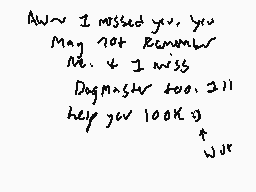 Aww I missed you. You
May not Remember
Me. & I miss
DogMaster too. I'll
help you look :)